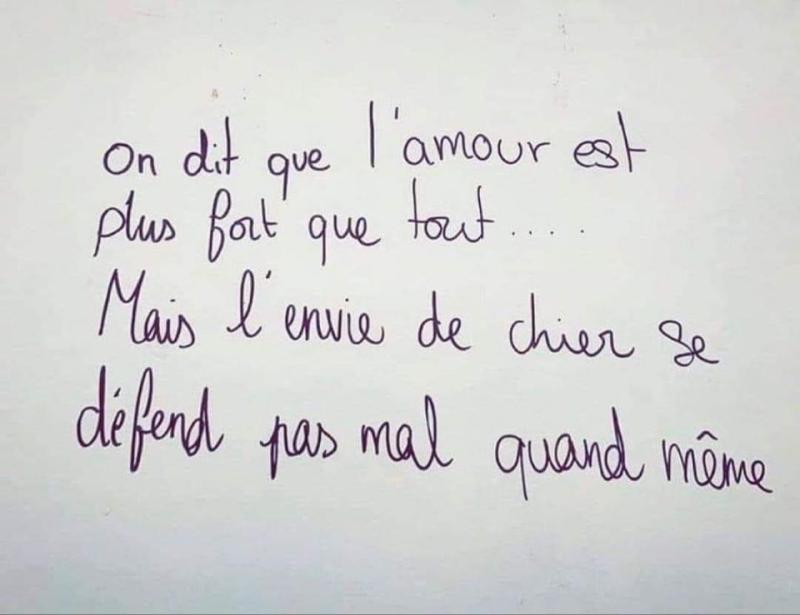 On dit que l'amour est
plus fort que tout....
Mais l'envie de chier se
défend pas mal quand même